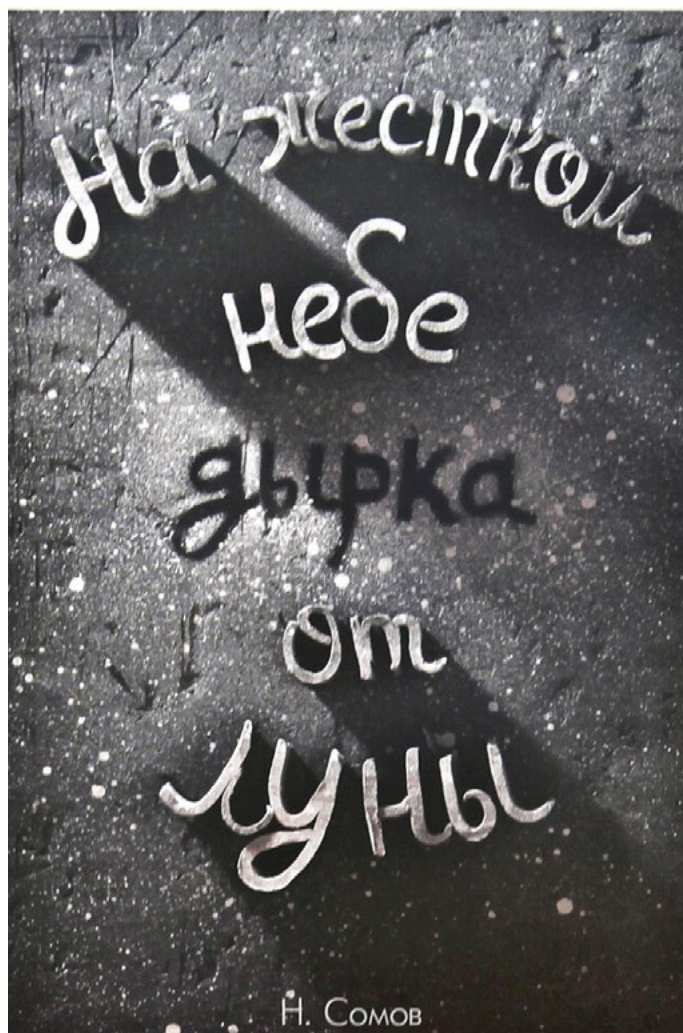 На жестком
небе
дырка
от
луны
Н. Сомов